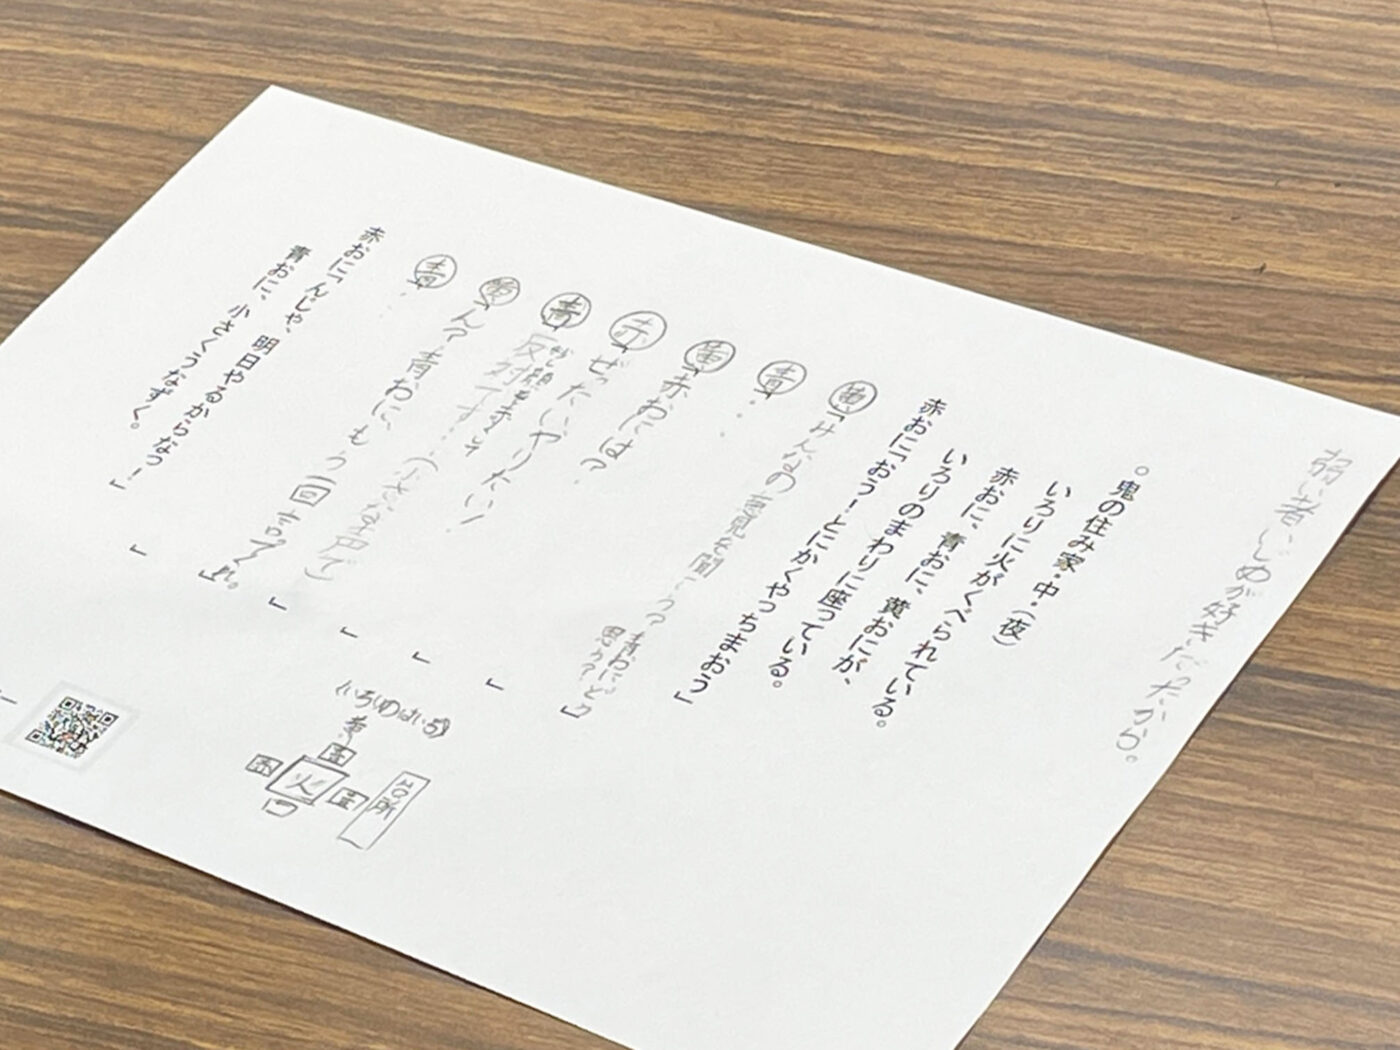 弱い者いじめが好きだったから。
○鬼の住み家・中・（夜）
いろりに火がくべられている。
赤おに、青おに、黄おにが、
いろりのまわりに座っている。
赤おに「おう！とにかくやっちまおう」
黄「みんなの意見を聞こうって青おにどう思う？」
青「・・
黄「赤おには？
赤「ぜったいやりたい！」
青「反対です・・（小さな声で）」
黄「んで青おに、もう一回言ってくれ。」
青「・・
赤おに「んじゃ、明日やるからなっ！」
青おに、小さくうなずく。
火
台所